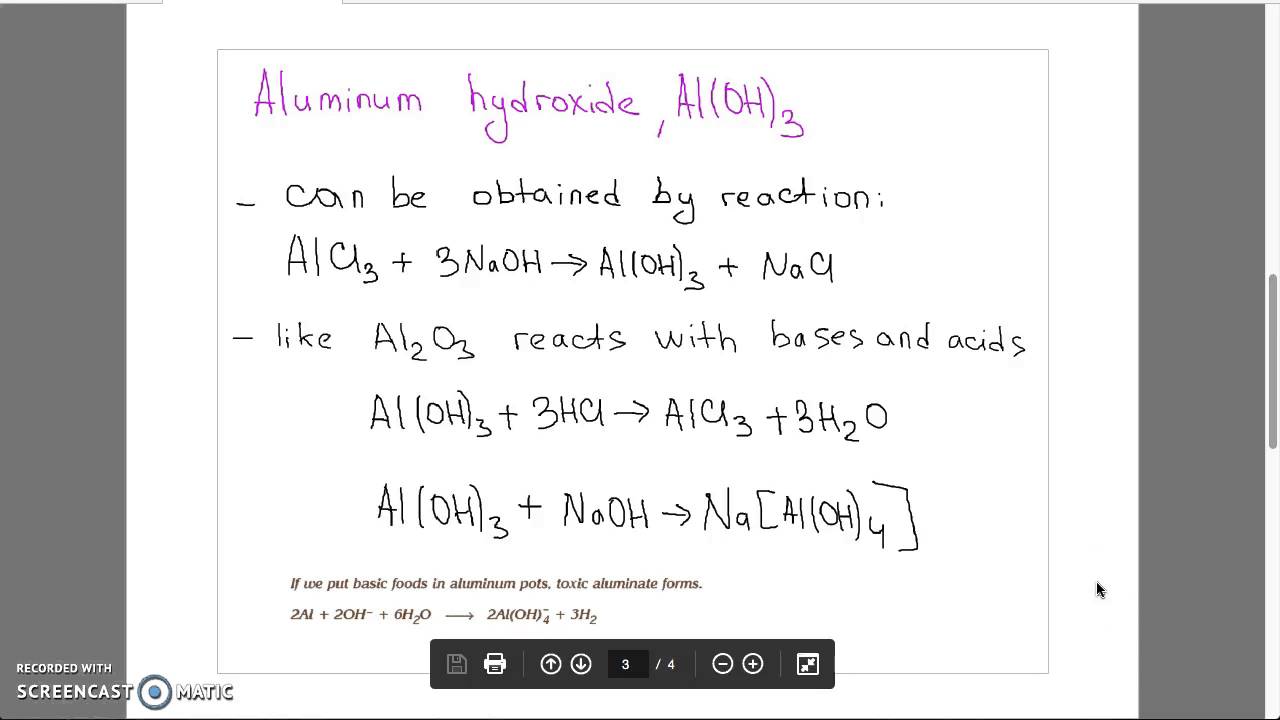 Aluminum hydroxide, Al(OH)₃
- can be obtained by reaction:
AlCl₃ + 3NaOH → Al(OH)₃ + NaCl
- like Al₂O₃ reacts with bases and acids
Al(OH)₃ + 3HCl → AlCl₃ + 3H₂O
Al(OH)₃ + NaOH → Na[Al(OH)₄]
If we put basic foods in aluminum pots, toxic aluminate forms.
2Al + 2OH⁻ + 6H₂O ⟶ 2Al(OH)₄⁻ + 3H₂
3 / 4
RECORDED WITH
SCREENCAST MATIC